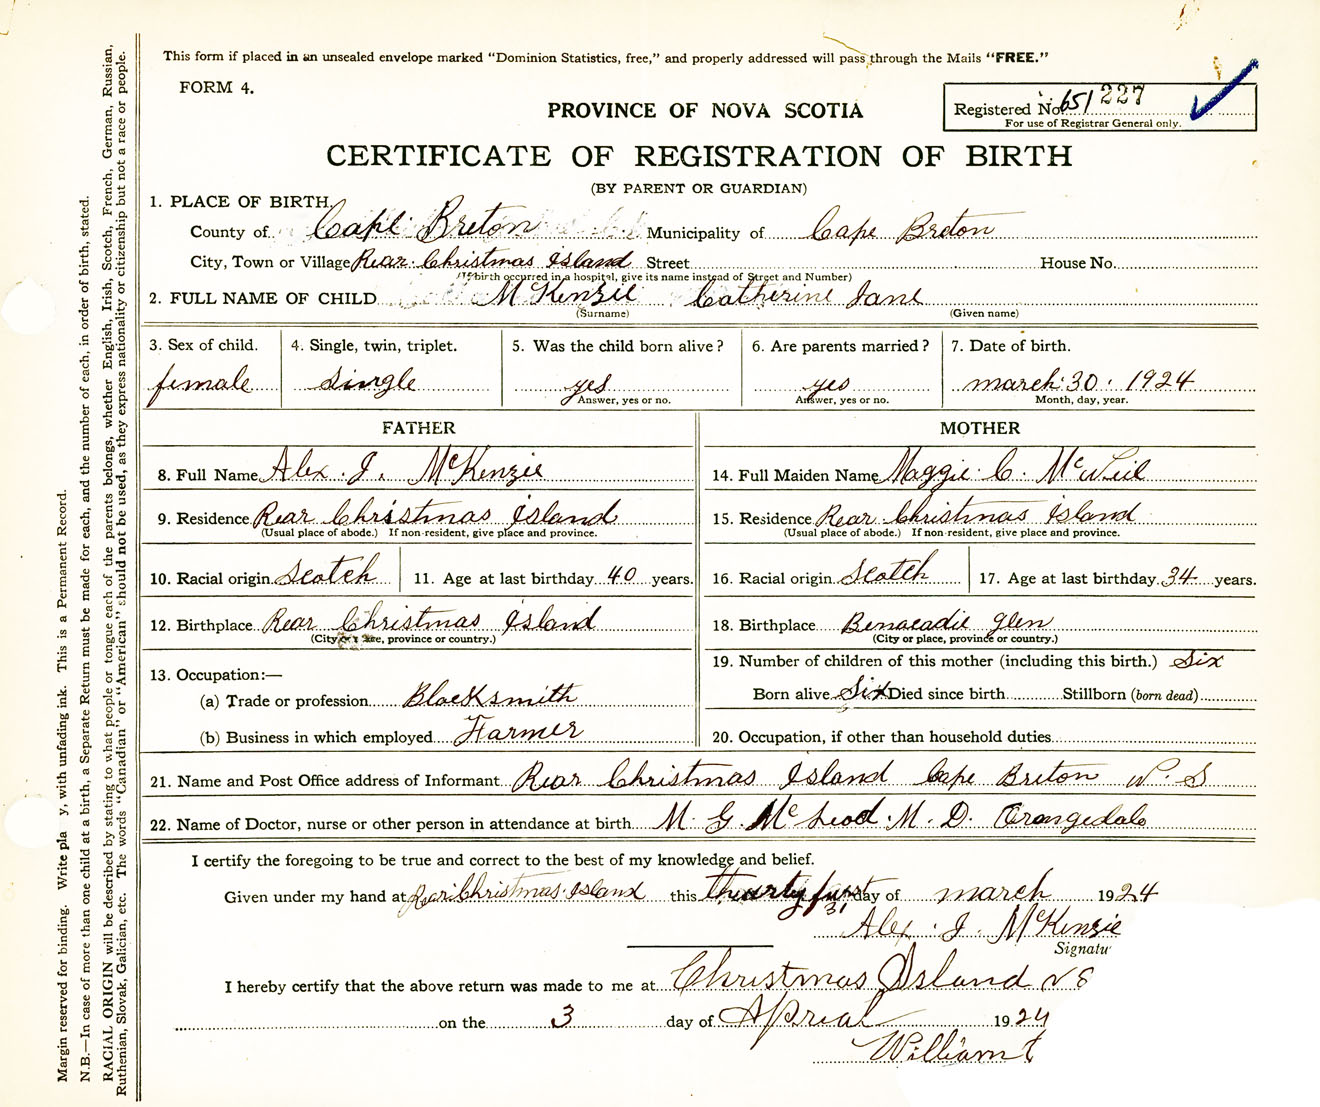 This form if placed in an unsealed envelope marked “Dominion Statistics, free,” and properly addressed will pass through the Mails “FREE.”
FORM 4.
PROVINCE OF NOVA SCOTIA
Registered No. 651 227
For use of Registrar General only.
CERTIFICATE OF REGISTRATION OF BIRTH
(BY PARENT OR GUARDIAN)
1. PLACE OF BIRTH.
County of Cape Breton Municipality of Cape Breton
City, Town or Village Rear Christmas Island Street House No.
(If birth occurred in a hospital, give its name instead of Street and Number)
2. FULL NAME OF CHILD McKenzie Catherine Jane
(Surname) (Given name)
3. Sex of child. 4. Single, twin, triplet. 5. Was the child born alive? 6. Are parents married? 7. Date of birth.
female single yes yes march 30. 1924
Answer, yes or no. Answer, yes or no. Month, day, year.
FATHER MOTHER
8. Full Name Alex. J. McKenzie 14. Full Maiden Name Maggie C. McNeil
9. Residence Rear Christmas Island 15. Residence Rear Christmas Island
(Usual place of abode.) If non-resident, give place and province. (Usual place of abode.) If non-resident, give place and province.
10. Racial origin Scotch 11. Age at last birthday 40 years. 16. Racial origin Scotch 17. Age at last birthday 34 years.
12. Birthplace Rear Christmas Island 18. Birthplace Benacadie Glen
(City or place, province or country.) (City or place, province or country.)
13. Occupation:— 19. Number of children of this mother (including this birth.) Six
(a) Trade or profession Blacksmith Born alive Six Died since birth Stillborn (born dead)
(b) Business in which employed Farmer 20. Occupation, if other than household duties
21. Name and Post Office address of Informant Rear Christmas Island Cape Breton N. S
22. Name of Doctor, nurse or other person in attendance at birth M. G. McLeod. M. D. Orangedale
I certify the foregoing to be true and correct to the best of my knowledge and belief.
Given under my hand at Rear Christmas Island this thirty first day of march 1924
31
Alex. J. McKenzie
Signatu
I hereby certify that the above return was made to me at Christmas Island N S
on the 3 day of Aprial 1924
William
Margin reserved for binding. Write pla y, with unfading ink. This is a Permanent Record.
N.B.—In case of more than one child at a birth, a Separate Return must be made for each, and the number of each, in order of birth, stated.
RACIAL ORIGIN will be described by stating to what people or tongue each of the parents belongs, whether English, Irish, Scotch, French, German, Russian,
Ruthenian, Slovak, Galician, etc. The words “Canadian” or “American” should not be used, as they express nationality or citizenship but not a race or people.